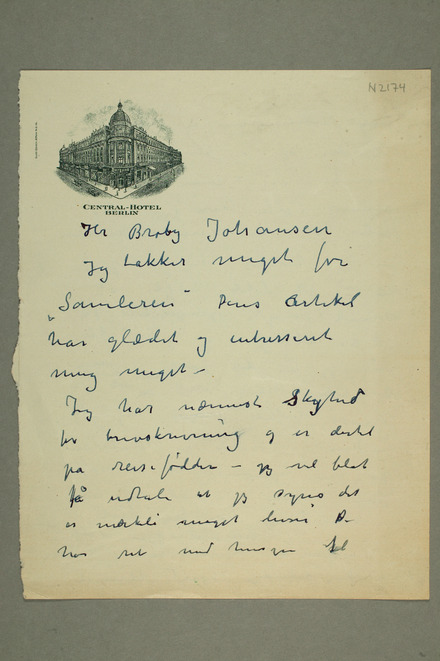 N2174
CENTRAL-HOTEL
BERLIN
Hr Broby Johansen
Jeg takker meget for
"Samleren" Deres Artikel
har glædet og intresseret
mig meget –
Jeg har nærmest Skyhed
for brevskrivning og er
på reisefødder – jeg vil blot
få udtale at jeg synes det
er meget
har ret med